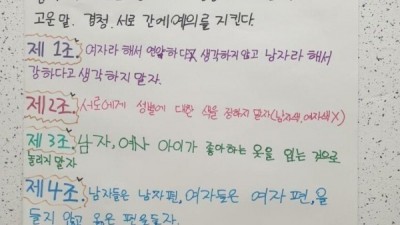 고운 말. 경청. 서로 간에 예의를 지킨다.
제 1조. 여자라 해서 연약하다 생각하지 않고 남자라 해서
강하다고 생각하지 말자.
제2조. 서로에게 성별에 대한 색을 정하지 말자(남자색, 여자색X)
제3조. 남자, 여자 아이가 좋아하는 옷을 입는 것으로
놀리지 말자
제4조. 남자들은 남자편, 여자들은 여자 편,을
들지 않고 옳은 편을들자.